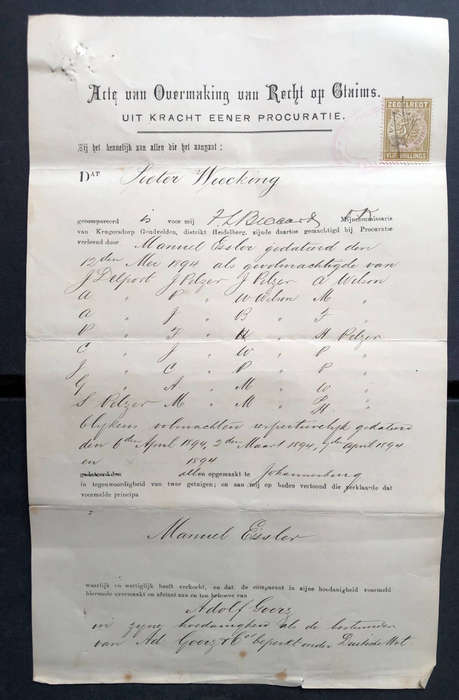 Acte van Overmaking van Recht op Claims.
UIT KRACHT EENER PROCURATIE.
ZEGELREGT
VIJF SHILLINGS
Zij het kennelijk aan allen die het aangaat:
DAT Pieter Wocking
gecompareerd is voor mij Mijncommissaris
van Krugersdorp Goudvelden, distrikt Heidelberg, zijnde daartoe gemachtigd bij Procuratie
verleend door Manuel Essler gedateerd den
12den Mei 1894 als gevolmachtigde van
J Delport J Pelzer J Pelzer A Wilson
A " P " W Wilson M "
A " J " B " F "
P " F " H " H Pelzer
C " J " W " P "
J " C " P " P "
G " A " M " W "
S Pelzer M " M " H "
blijkens volmachten respectievelijk gedateerd
den 6th April 1894, 2den Maart 1894, 7den April 1894
en 1894
allen opgemaakt te Johannesburg
in tegenwoordigheid van twee getuigen; en aan mij op heden vertoond die verklaarde dat
voormelde principa
Manuel Essler
waarlijk en wettiglijk heeft verkocht, en dat de comparant in zijne hoedanigheid voormeld
hiermede overmaakt en afstaat aan en ten behoeve van
Adolf Goerz
in zyne hoedanigheid als de bestuurder
van Ad Goerz & Co beperkt onder Duitsche Wet